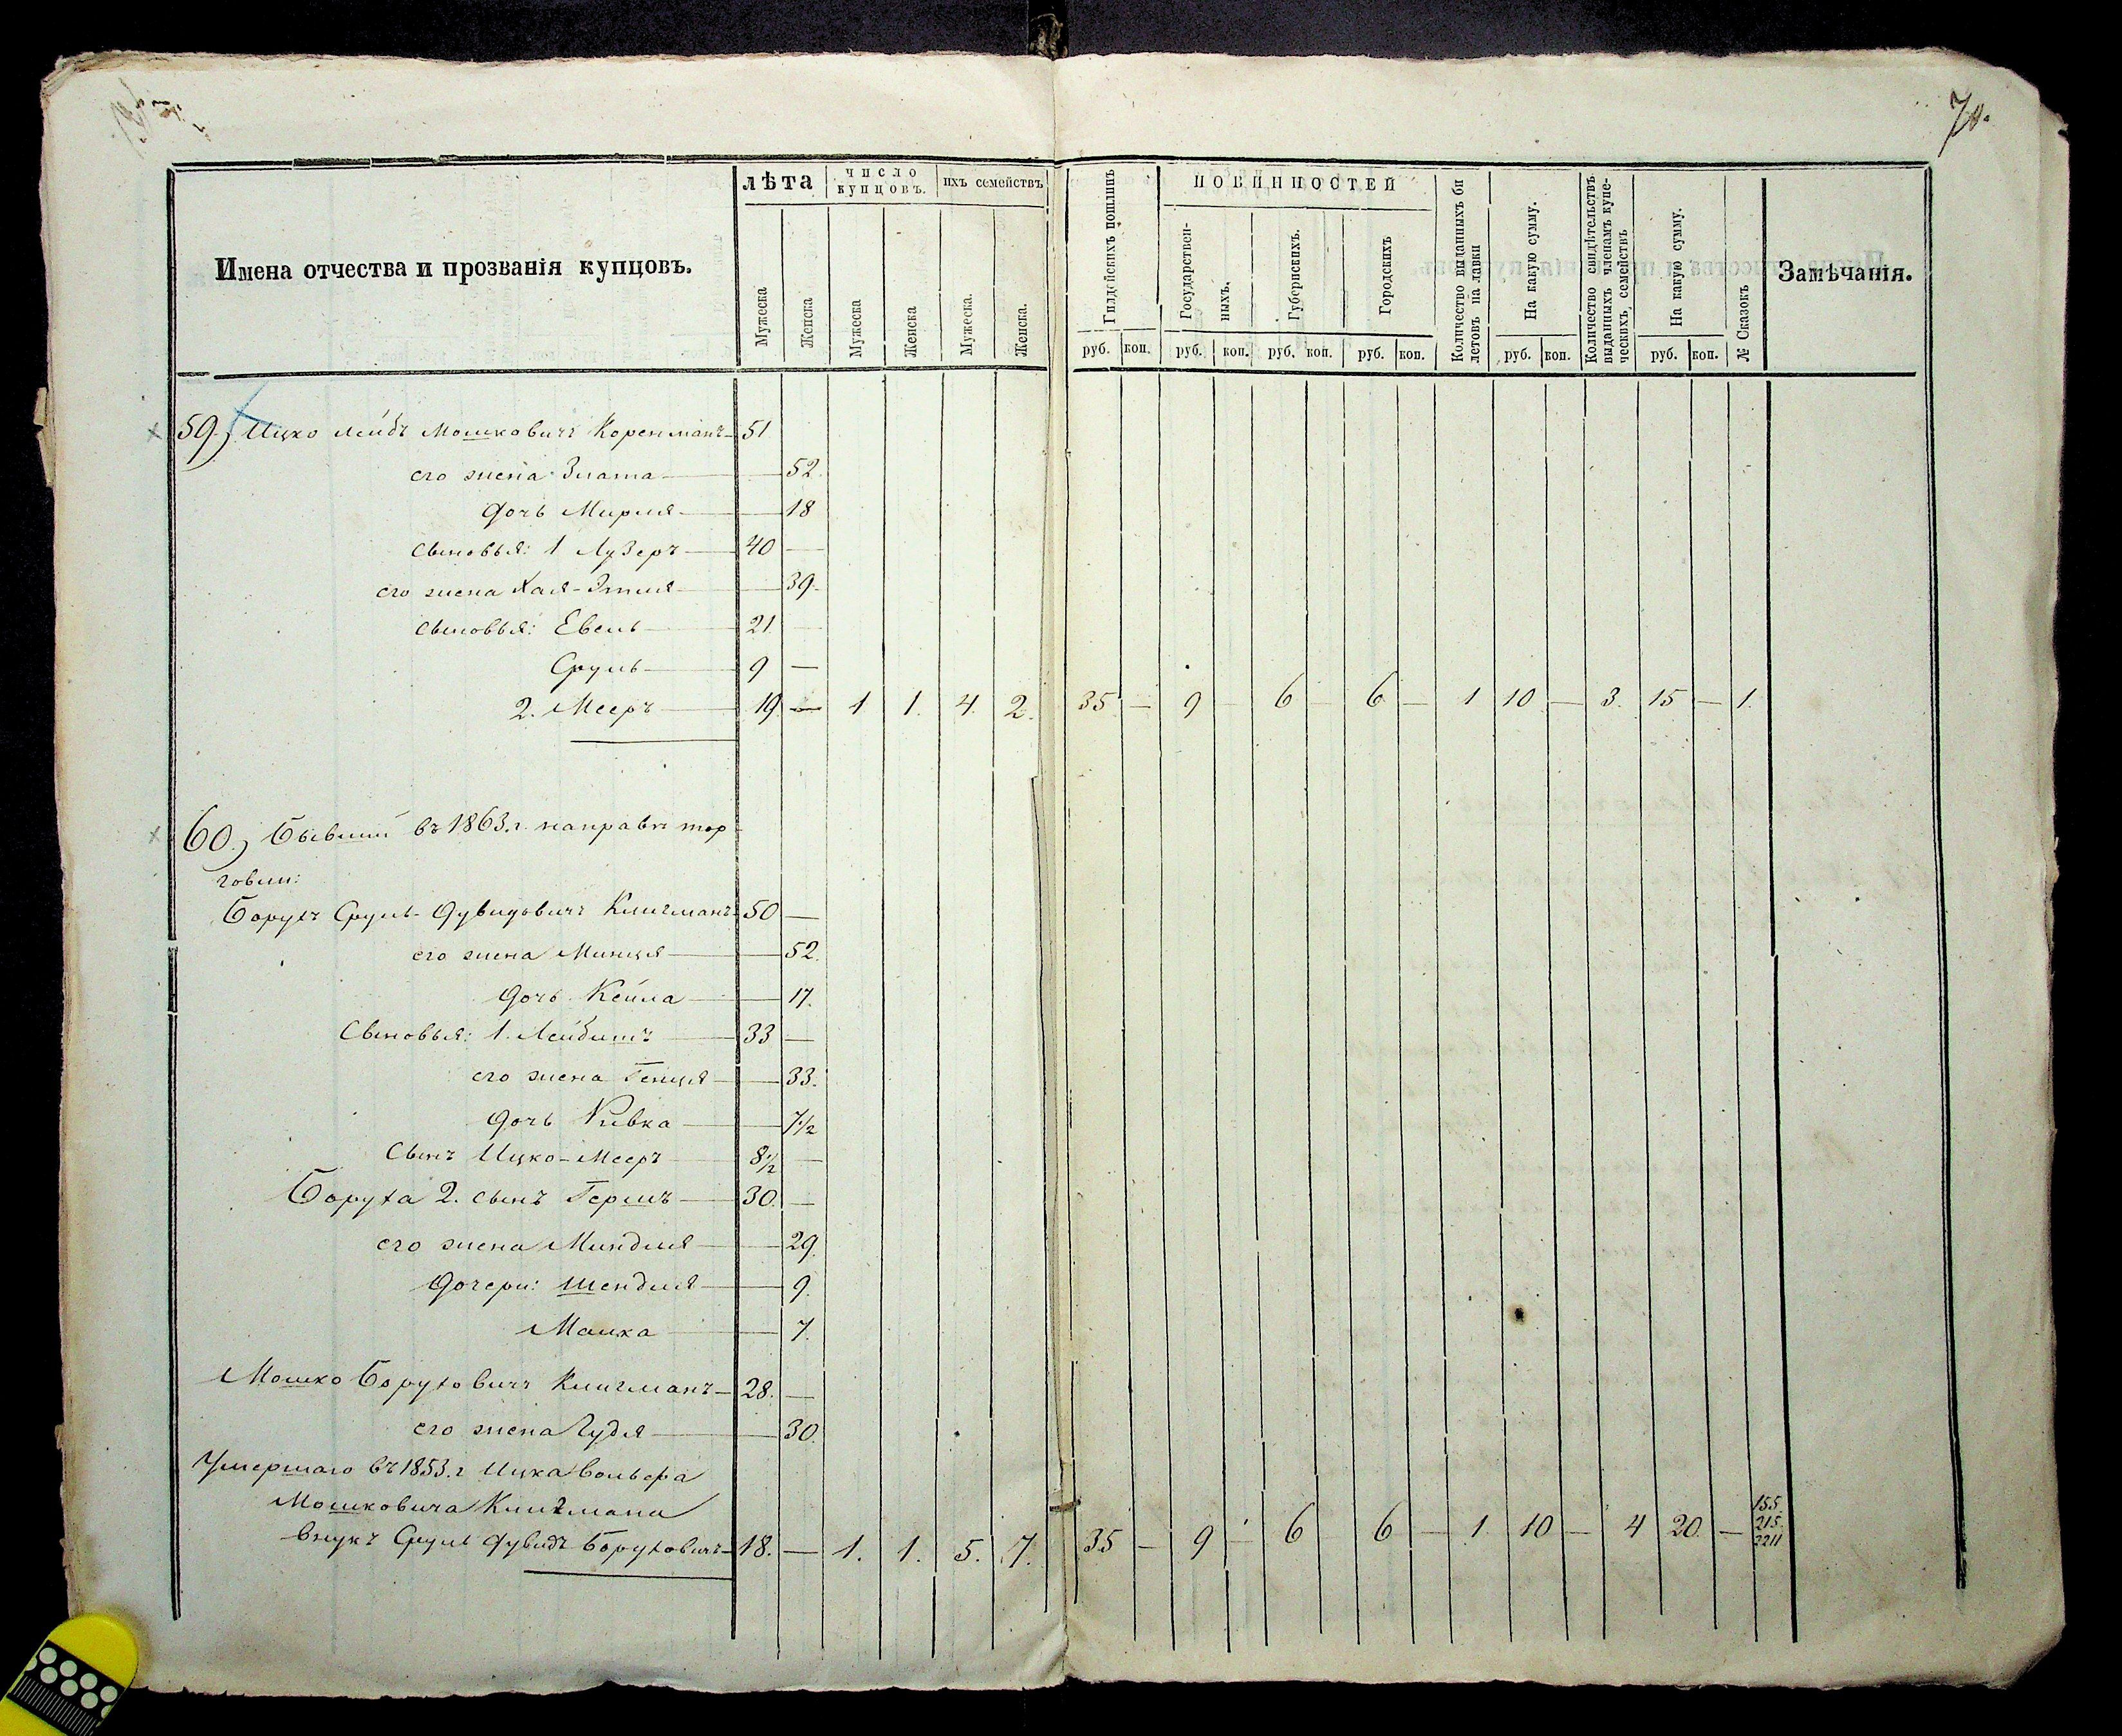 70.
Имена отчества и прозванія купцовъ.
лѣта
число купцовъ.
ихъ семействъ
Мужеска
Женска
Мужеска
Женска
Мужеска.
Женска.
Гилдейскихъ пошлинъ
ПОВИННОСТЕЙ
Государствен-
ныхъ.
Губернскихъ.
Городскихъ
Количество выданныхъ би
летовъ на лавки
На какую сумму.
Количество свидѣтельствъ
выданныхъ членамъ купе-
ческихъ семействъ
На какую сумму.
№ Сказокъ
Замѣчанія.
руб. коп. руб. коп. руб. коп. руб. коп. руб. коп. руб. коп.
59.) Ицко Лейбъ Мошковичъ Коренманъ 51
его жена Злата — 52.
дочь Мирля — 18
сыновья: 1 Лузеръ 40 —
его жена Хая-Этля — 39.
сыновья: Евель 21. —
Сруль 9 —
2. Мееръ 19. — 1 1. 4. 2. 35 — 9 — 6 — 6 — 1 10 — 3. 15 — 1.
60.) Бывший въ 1863.г. направѣ тор
говли:
Борухъ Сруль-Дувидовичъ Клигманъ 50 —
его жена Минця — 52.
дочь Кейла — 17.
Сыновья: 1. Лейбишъ 33 —
его жена Генця — 33.
дочь Ривка — 7½
Сынъ Ицко-Мееръ 8½ —
Боруха 2. сынъ Гершъ 30. —
его жена Миндля — 29.
дочери: Шендля — 9.
Малка — 7.
Мошко Боруховичъ Клигманъ 28. —
его жена Гудя — 30.
Умершаго въ 1853.г Ицка Вольфа
Мошковича Клигмана
внукъ Сруль Дувидъ Боруховичъ 18. — 1. 1. 5. 7. 35 — 9 — 6 6 — 1. 10 — 4 20. — 155. 215. 2211